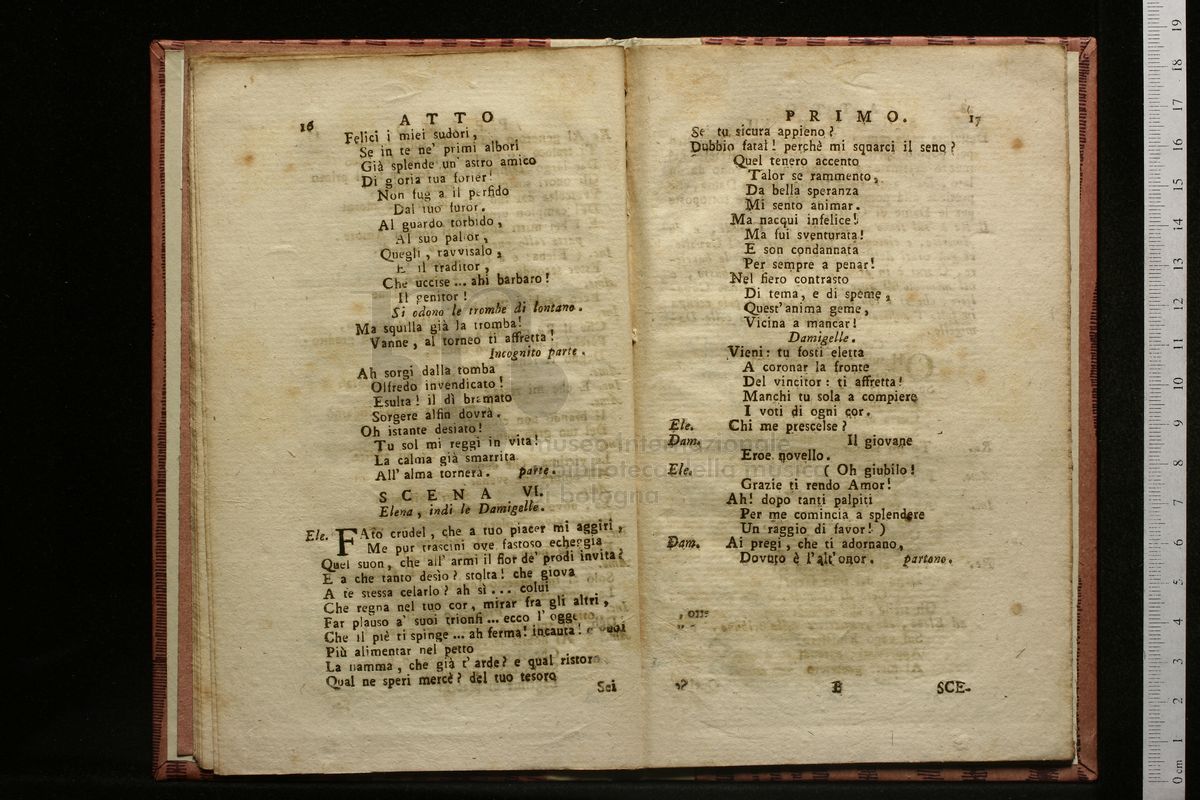 16
ATTO
Felici i miei sudori,
Se in te ne' primi albori
Già splende un' astro amico
Di gloria tua forier!
Non fugga il perfido
Dal tuo furor.
Al guardo torbido,
Al suo pallor,
Quegli, ravvisalo,
E il traditor,
Che uccise ... ahi barbaro!
Il genitor!
Si odono le trombe di lontano.
Ma squilla già la tromba!
Vanne, al torneo ti affretta!
Incognito parte.
Ah sorgi dalla tomba
Olfredo invendicato!
Esulta! il dì bramato
Sorgere alfin dovrà.
Oh istante desiato!
Tu sol mi reggi in vita!
La calma già smarrita
All' alma tornerà. parte.
SCENA VI.
Elena, indi le Damigelle.
Ele. FAto crudel, che a tuo piacer mi aggiri,
Me pur trascini ove fastoso echeggia
Quel suon, che all' armi il fior de' prodi invita?
E a che tanto desìo? stolta! che giova
A te stessa celarlo? ah sì ... colui
Che regna nel tuo cor, mirar fra gli altri,
Far plauso a' suoi trionfi ... ecco l' oggetto
Che il piè ti spinge ... ah ferma! incauta! e vuoi
Più alimentar nel petto
La fiamma, che già t' arde? e qual ristoro
Qual ne speri mercè? del tuo tesoro
Sei
PRIMO.
17
Se tu sicura appieno?
Dubbio fatal! perchè mi squarci il seno?
Quel tenero accento
Talor se rammento,
Da bella speranza
Mi sento animar.
Ma nacqui infelice!
Ma fui sventurata!
E son condannata
Per sempre a penar!
Nel fiero contrasto
Di tema, e di speme,
Quest' anima geme,
Vicina a mancar!
Damigelle.
Vieni: tu fosti eletta
A coronar la fronte
Del vincitor: ti affretta!
Manchi tu sola a compiere
I voti di ogni cor.
Ele. Chi me prescelse?
Dam. Il giovane
Eroe novello.
Ele. (Oh giubilo!
Grazie ti rendo Amor!
Ah! dopo tanti palpiti
Per me comincia a splendere
Un raggio di favor!)
Dam. Ai pregi, che ti adornano,
Dovuto è l' alt' onor. partono.
B
SCE-
museo internazionale
e biblioteca della musica
di bologna